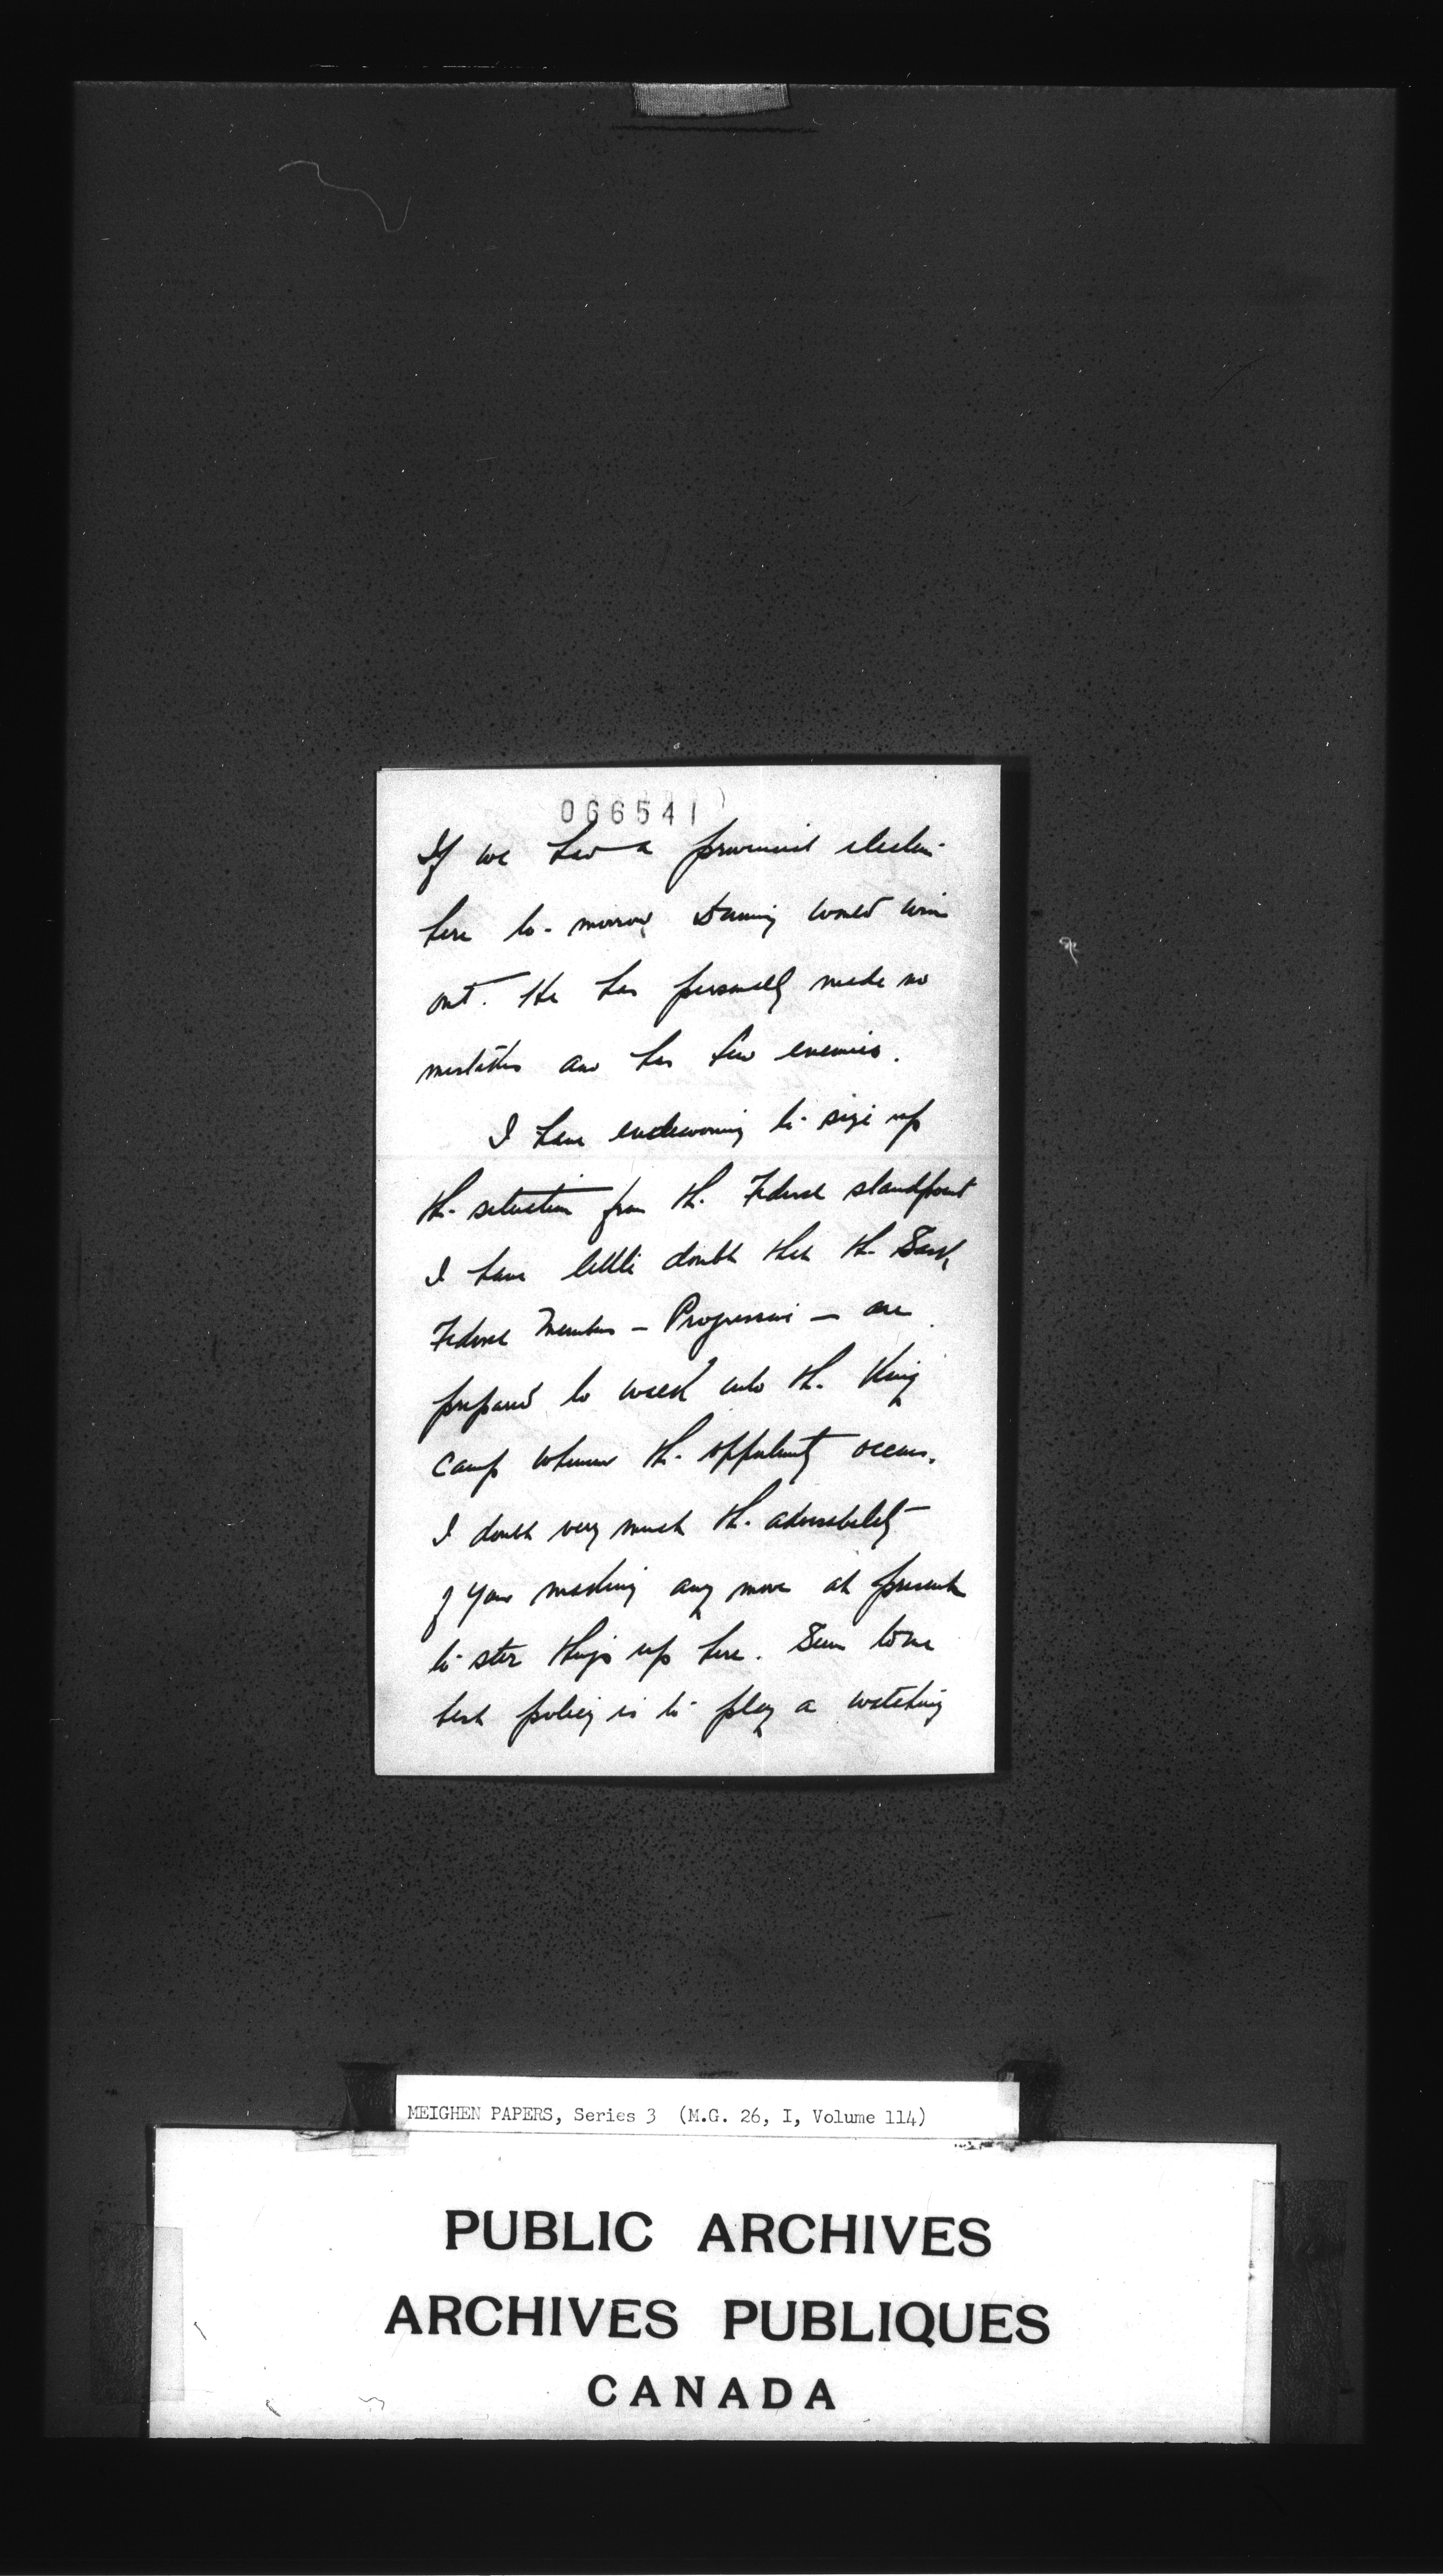 066541
If we had a provincial election
here to-morrow Dunning would win
out. He has personally made no
mistakes and has few enemies.
I have endeavoring to size up
the situation from the Federal standpoint
I have little doubt that the Sask,
Federal Members - Progressive - are
prepared to walk into the King
camp whenever the opportunity occurs.
I doubt very much the advisability
of your making any move at present
to stir things up here. Seems to me
best policy is to play a watching
MEIGHEN PAPERS, Series 3 (M.G. 26, I, Volume 114)
PUBLIC ARCHIVES
ARCHIVES PUBLIQUES
CANADA